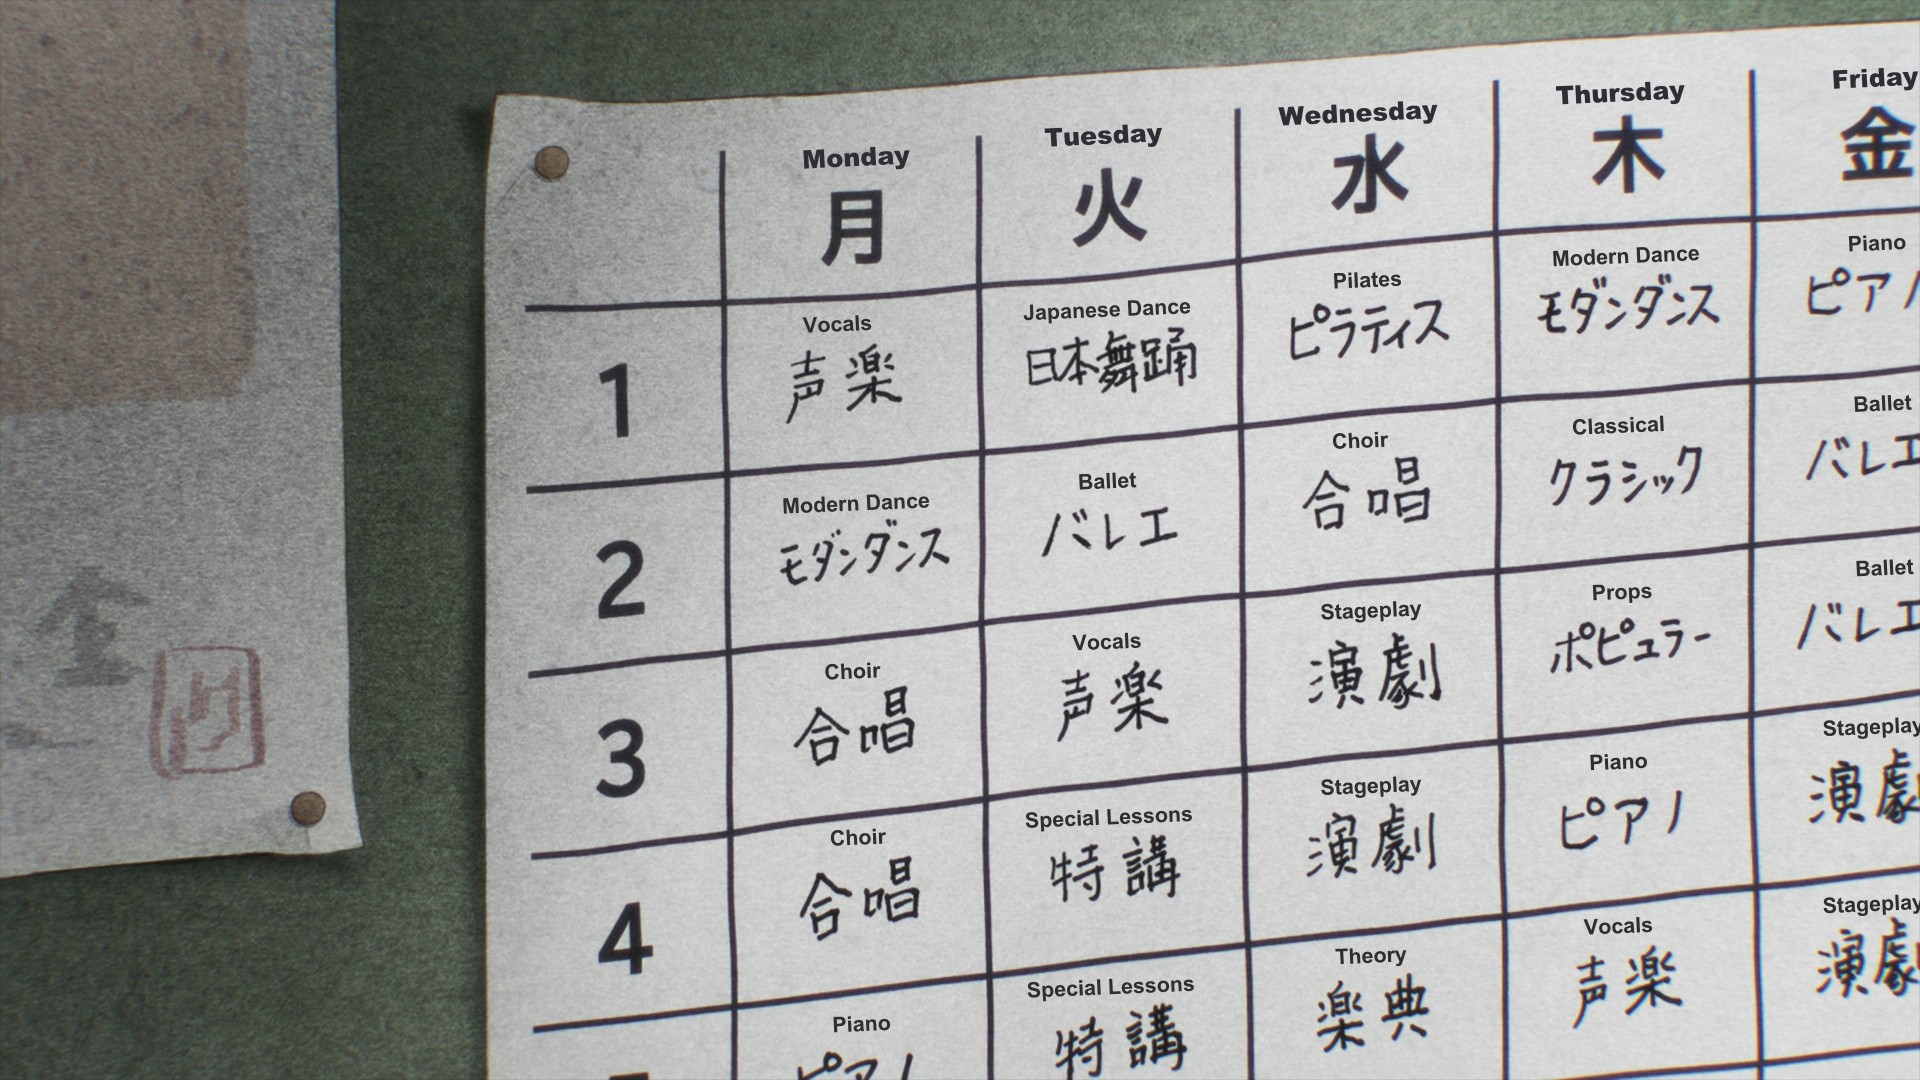 Monday Tuesday Wednesday Thursday Friday
月 火 水 木 金
1
Vocals Japanese Dance Pilates Modern Dance Piano
声楽 日本舞踊 ピラティス モダンダンス ピアノ
2
Modern Dance Ballet Choir Classical Ballet
モダンダンス バレエ 合唱 クラシック バレエ
3
Choir Vocals Stageplay Props Ballet
合唱 声楽 演劇 ポピュラー バレエ
4
Choir Special Lessons Stageplay Piano Stageplay
合唱 特講 演劇 ピアノ 演劇
Piano Special Lessons Theory Vocals Stageplay
ピアノ 特講 楽典 声楽 演劇